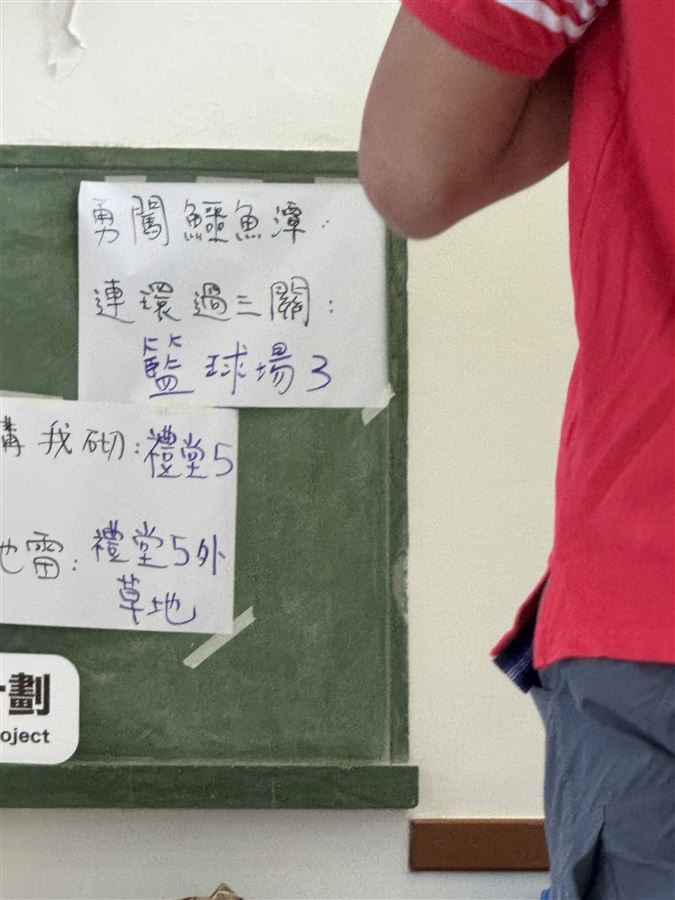 勇闖鱷魚潭：
連環過三關：
籃球場3
講我砌：禮堂5
地雷：禮堂5外
草地
劃
oject